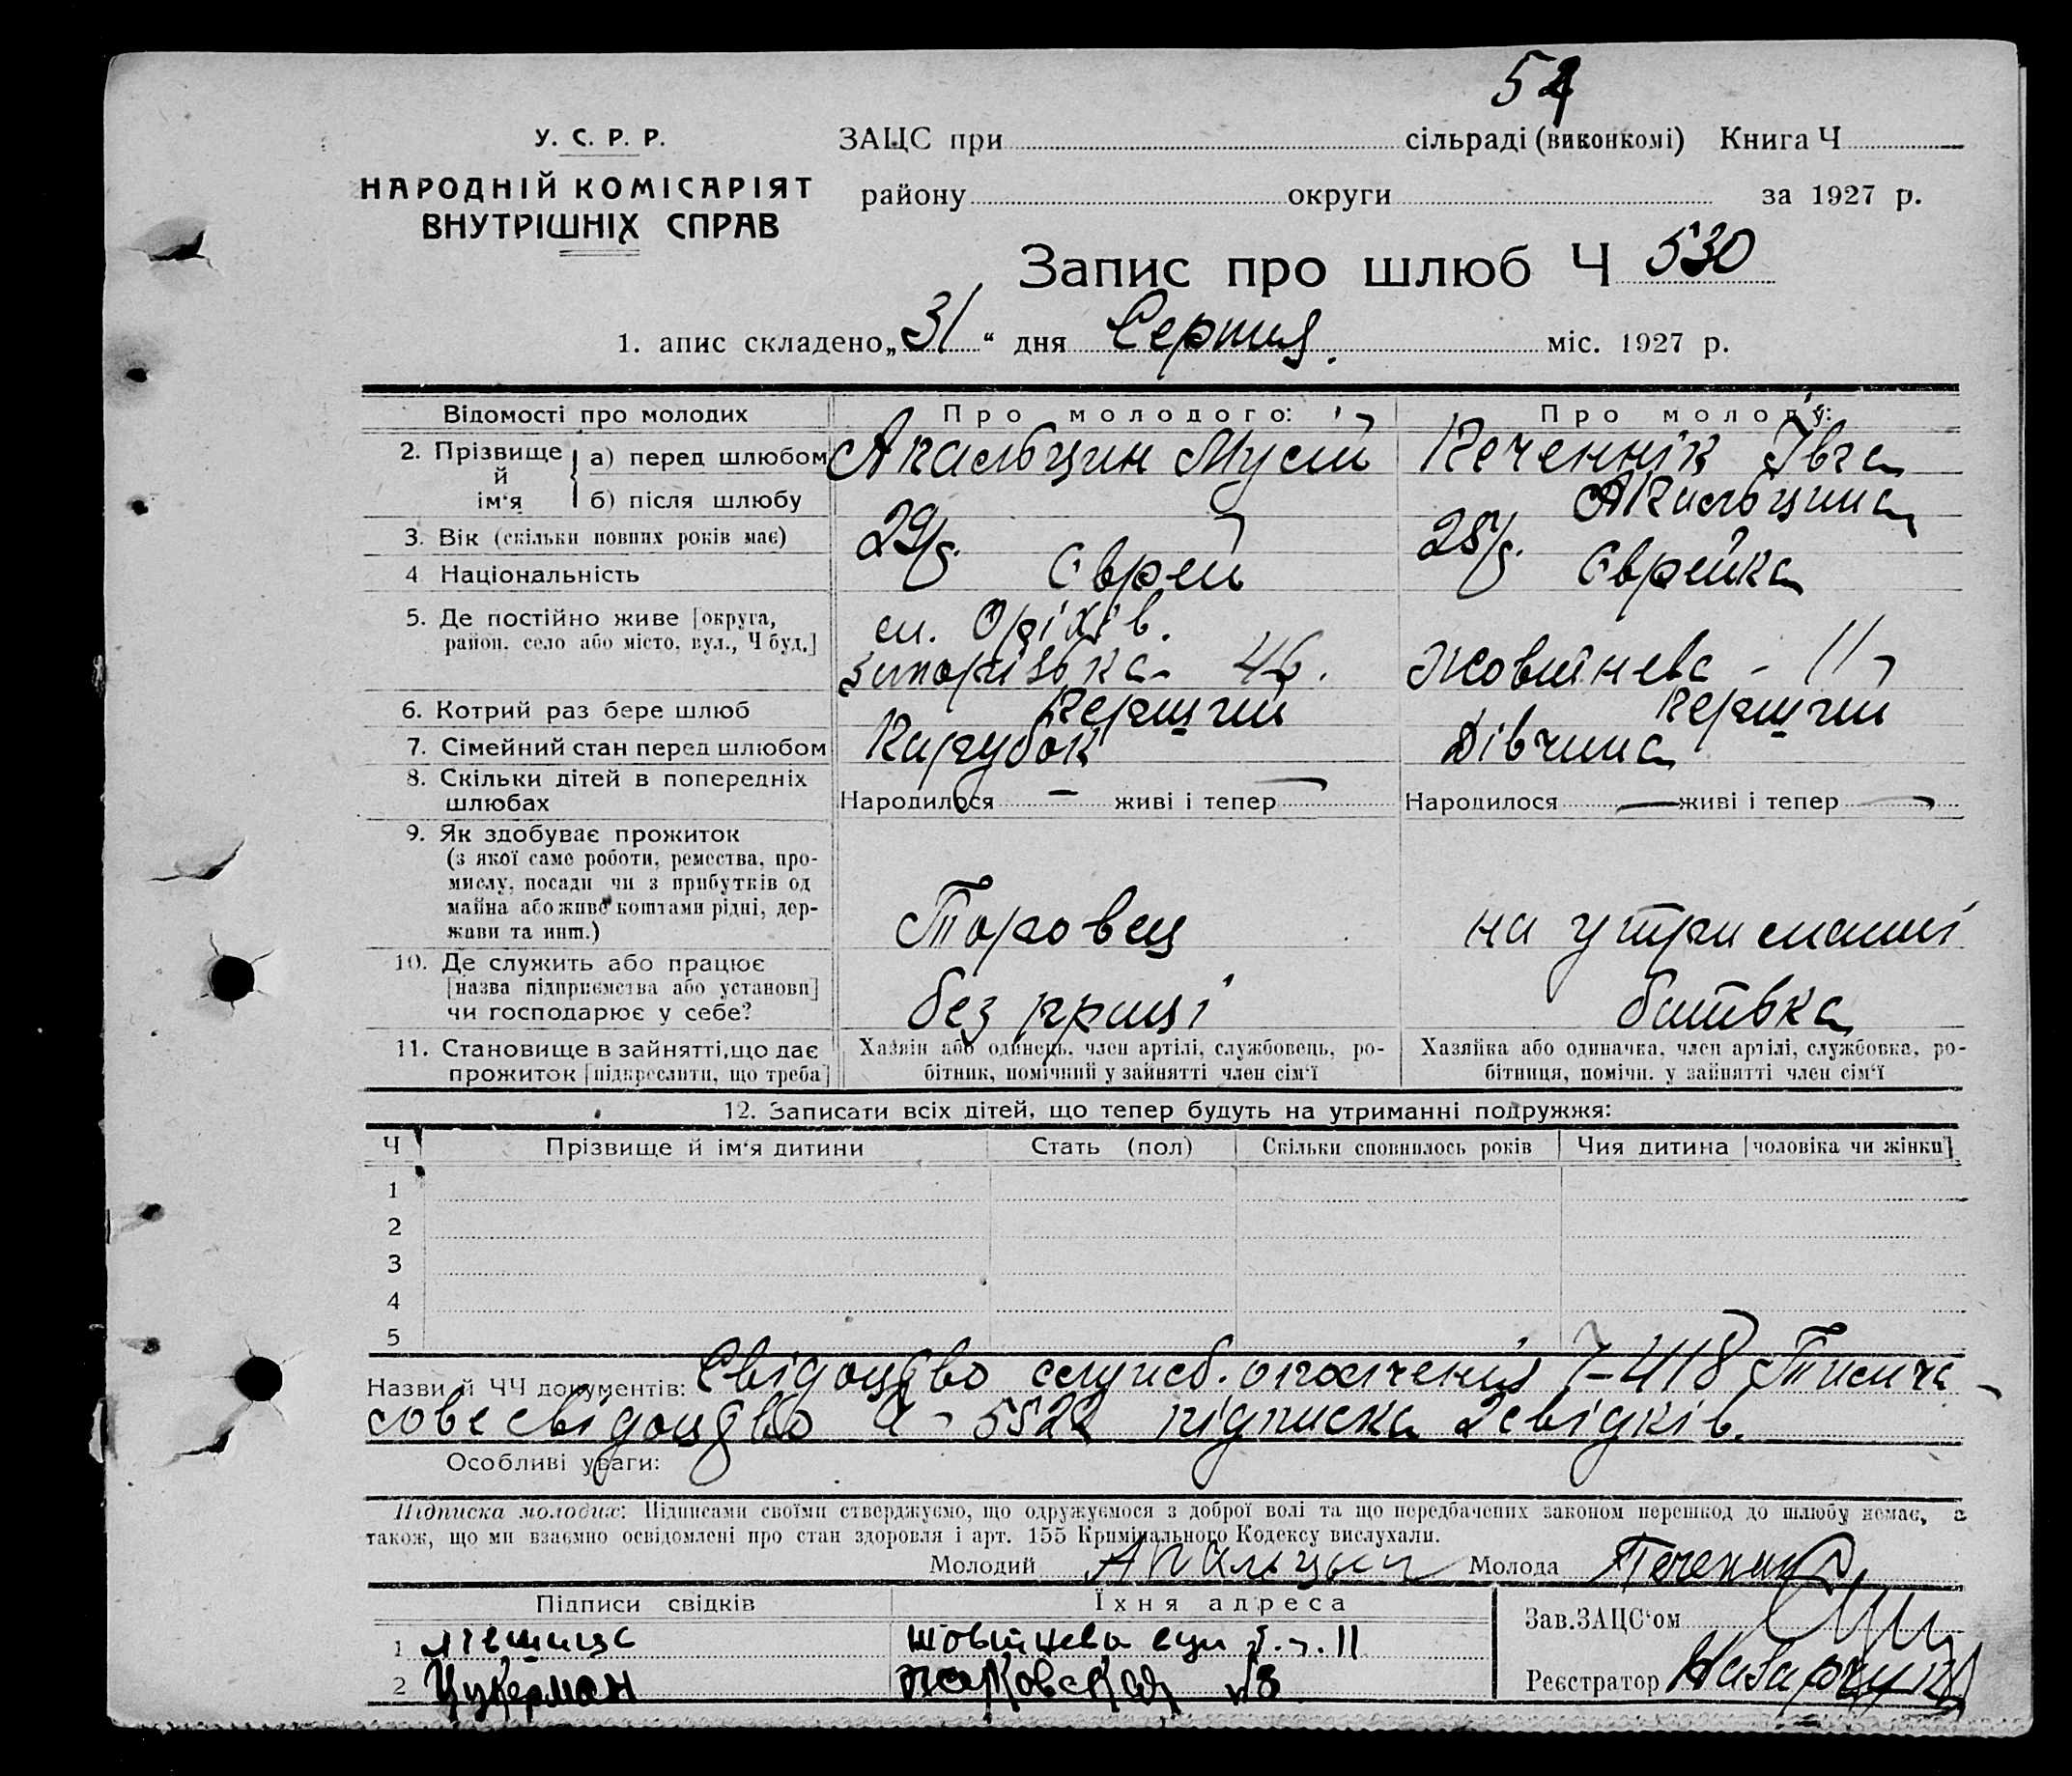 54
У. С. Р. Р.
НАРОДНІЙ КОМІСАРІЯТ
ВНУТРІШНІХ СПРАВ
ЗАЦС при сільраді (виконкомі) Книга Ч
району округи за 1927 р.
Запис про шлюб Ч 530
1. апис складено „31“ дня Серпня. міс. 1927 р.
Відомості про молодих Про молодого: Про молоду:
2. Прізвище й ім‘я
а) перед шлюбом Апальцин Мусій Печеннік Івга
б) після шлюбу Апальцина
3. Вік (скільки повних років має) 29 25
4 Національність Єврей Єврейка
5. Де постійно живе [округа, район, село або місто, вул., Ч буд.]
м. Оріхів. 46. Жовтнева - 11
6. Котрий раз бере шлюб Перший Перший
7. Сімейний стан перед шлюбом Парубок Дівчина
8. Скільки дітей в попередніх шлюбах
Народилося – живі і тепер – Народилося — живі і тепер —
9. Як здобуває прожиток
(з якої саме роботи, ремества, про-
мислу, посади чи з прибутків од
майна або живе коштами рідні, дер-
жави та инш.)
Торговец на утриманні
10. Де служить або працює
[назва підприємства або установи]
чи господарює у себе?
без праці батька
11. Становище в зайнятті, що дає
прожиток [підкреслити, що треба]
Хазяїн або одинець, член артілі, службовець, ро-
бітник, помічний у зайнятті член сім‘ї
Хазяйка або одиначка, член артілі, службовка, ро-
бітниця, помічн. у зайнятті член сім‘ї
12. Записати всіх дітей, що тепер будуть на утриманні подружжя:
Ч Прізвище й ім‘я дитини Стать (пол) Скільки сповнилось років Чия дитина [чоловіка чи жінки]
1
2
3
4
5
Назви й ЧЧ документів: Свідоцтво служб. ополчення 7-418 Тимча-
сове свідоцтво Ч 5522 підписка 2 свідків.
Особливі уваги:
Підписка молодих: Підписами своїми стверджуємо, що одружуємося з доброї волі та що передбачених законом перешкод до шлюбу немає, а
також, що ми взаємно освідомлені про стан здоровля і арт. 155 Кримінального Кодексу вислухали.
Молодий Апальцын Молода Печеник
Підписи свідків Їхня адреса
1 11
2 Цукерман
Зав. ЗАЦС‘ом
Реєстратор Назарчук